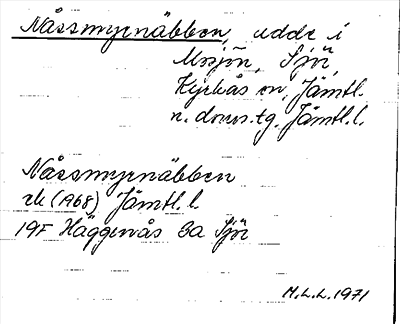 Nåssmyrnäbben, udde i
Mosjön, Sjör,
Kyrkås sn, Jämtl.
n. doms.tg, Jämtl.l.
Nåssmyrnäbben
rk (1968) Jämtl.l.
19F Häggenås 3a Sjör
M.L.L.1971